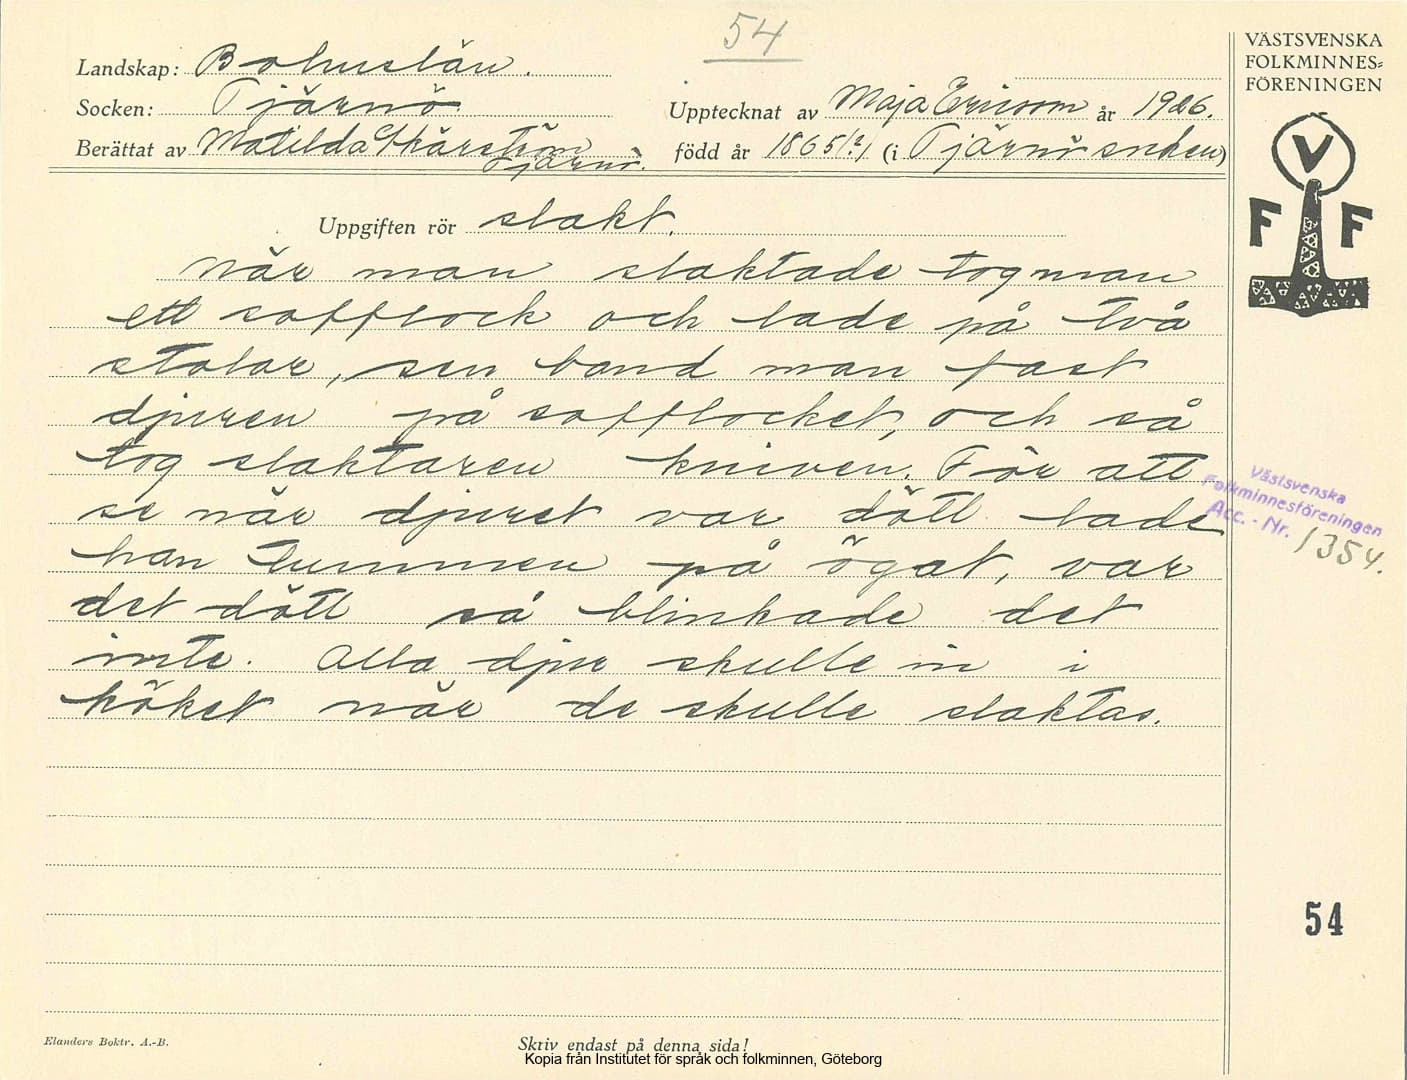 54
Landskap: Bohuslän.
Socken: Tjärnö
Upptecknat av Maja Ericson år 1926.
Berättat av Matilda Skärström
Tjärnö.
född år 1865(?) (i Tjärnö socken)
Uppgiften rör slakt.
När man slaktade tog man
ett sofflock och lade på två
stolar, sen band man fast
djuren på sofflocket, och så
tog slaktaren kniven. För att
se när djuret var dött lade
han tummen på ögat, var
det dött så blinkade det
inte. Alla djur skulle in i
köket när de skulle slaktas.
VÄSTSVENSKA
FOLKMINNES=
FÖRENINGEN
V
F F
Västsvenska
Folkminnesföreningen
Acc. - Nr. 1354.
54
Elanders Boktr. A.-B.
Skriv endast på denna sida!
Kopia från Institutet för språk och folkminnen, Göteborg